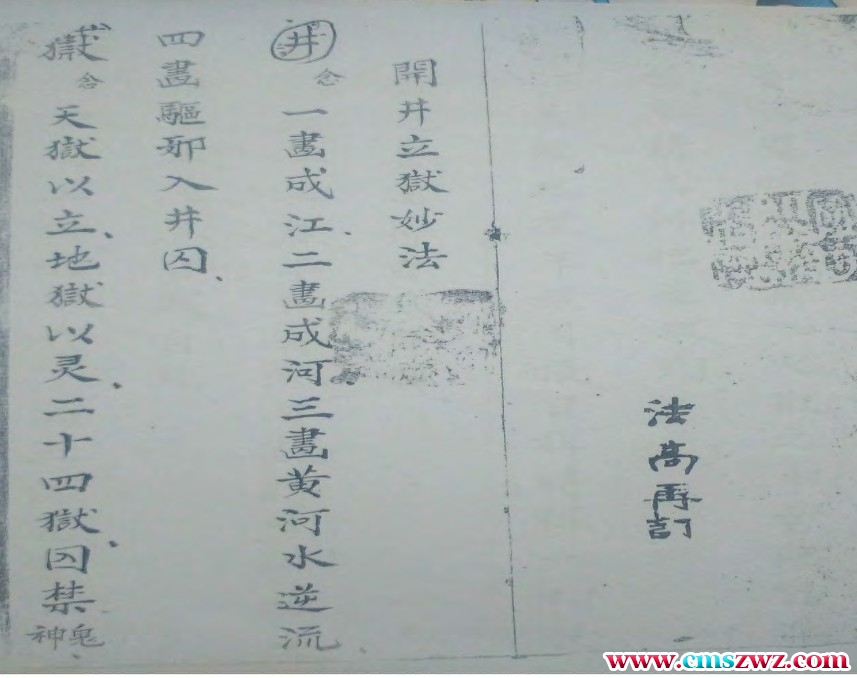 法高再訂
開井立獄妙法
井念一畫成江、二畫成河、三畫黄河水逆流、
四畫驅邪入井囚、
獄念天獄以立、地獄以灵、二十四獄、囚禁鬼神、
www.cmszwz.com